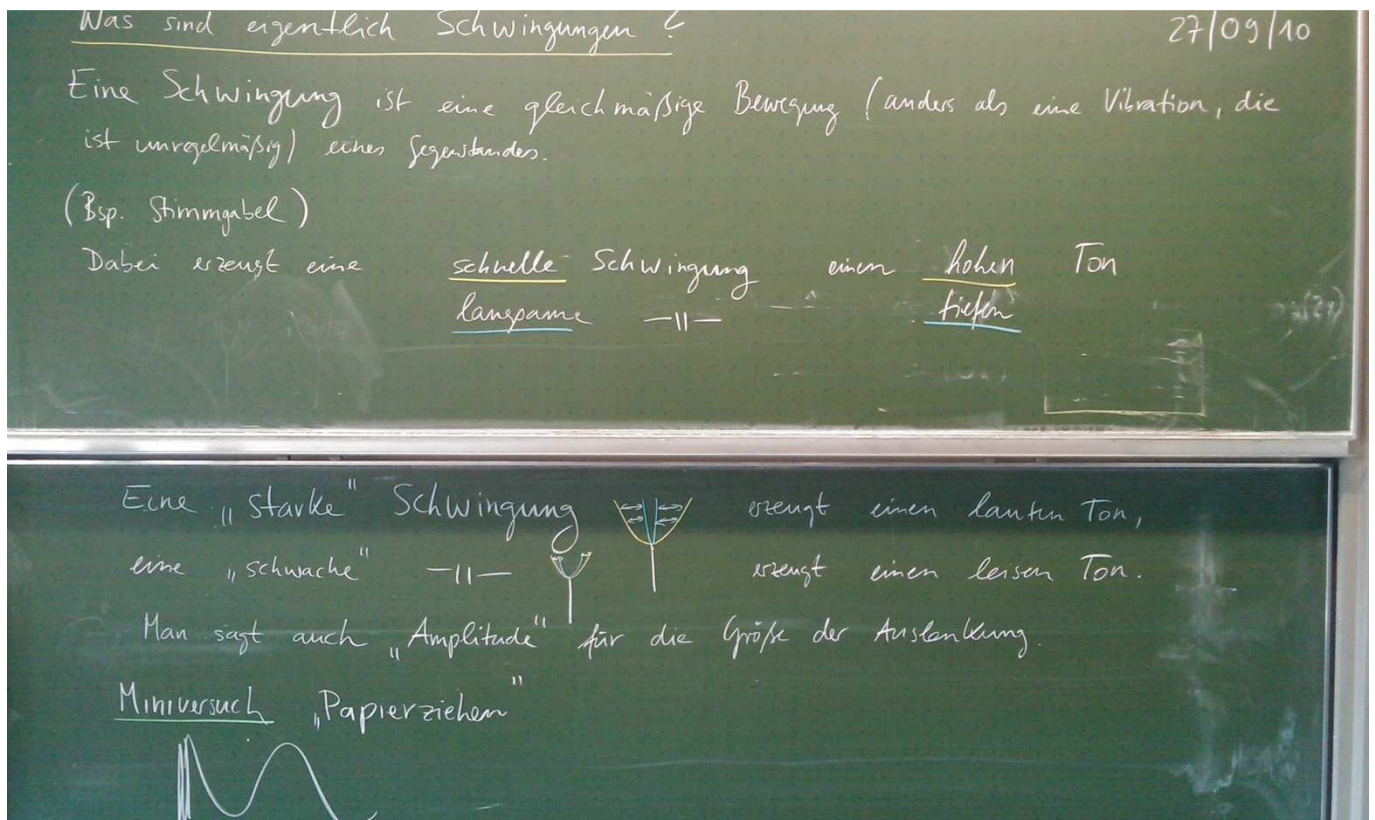 Was sind eigentlich Schwingungen ?
27/09/10
Eine Schwingung ist eine gleichmäßige Bewegung (anders als eine Vibration, die
ist unregelmäßig) eines Gegenstandes.
(Bsp. Stimmgabel)
Dabei erzeugt eine schnelle Schwingung einen hohen Ton
langsame —"— tiefen
Eine „starke" Schwingung erzeugt einen lauten Ton,
eine „schwache" —"— erzeugt einen leisen Ton.
Man sagt auch „Amplitude" für die Größe der Auslenkung.
Miniversuch „Papierziehen"